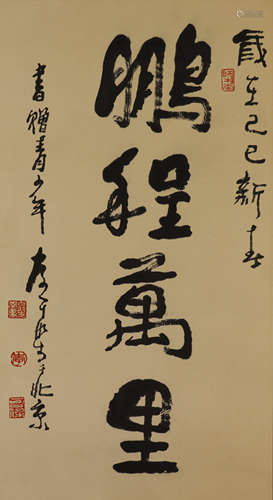 歲在己巳新春
鵬程萬里
書贈青少年 於北京